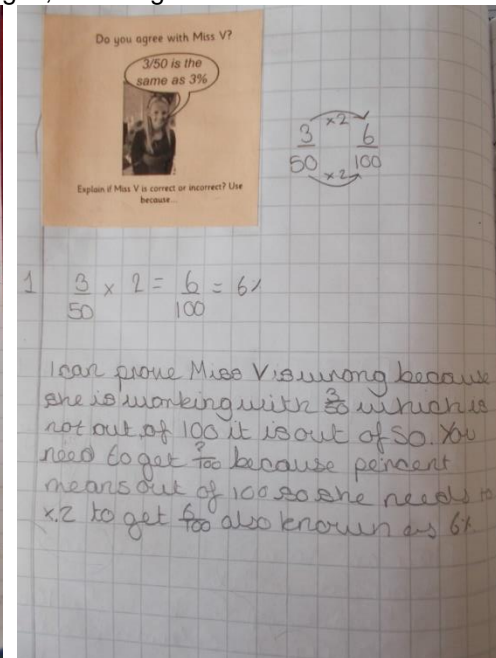 Do you agree with Miss V?
3/50 is the
same as 3%
Explain if Miss V is correct or incorrect? Use
because...
×2
3 6
50 100
×2
1 3/50 × 2 = 6/100 = 6%
I can prove Miss V is wrong because
she is working with 3/50 which is
not out of 100 it is out of 50. You
need to get ?/100 because percent
means out of 100 so she needs to
×2 to get 6/100 also known as 6%